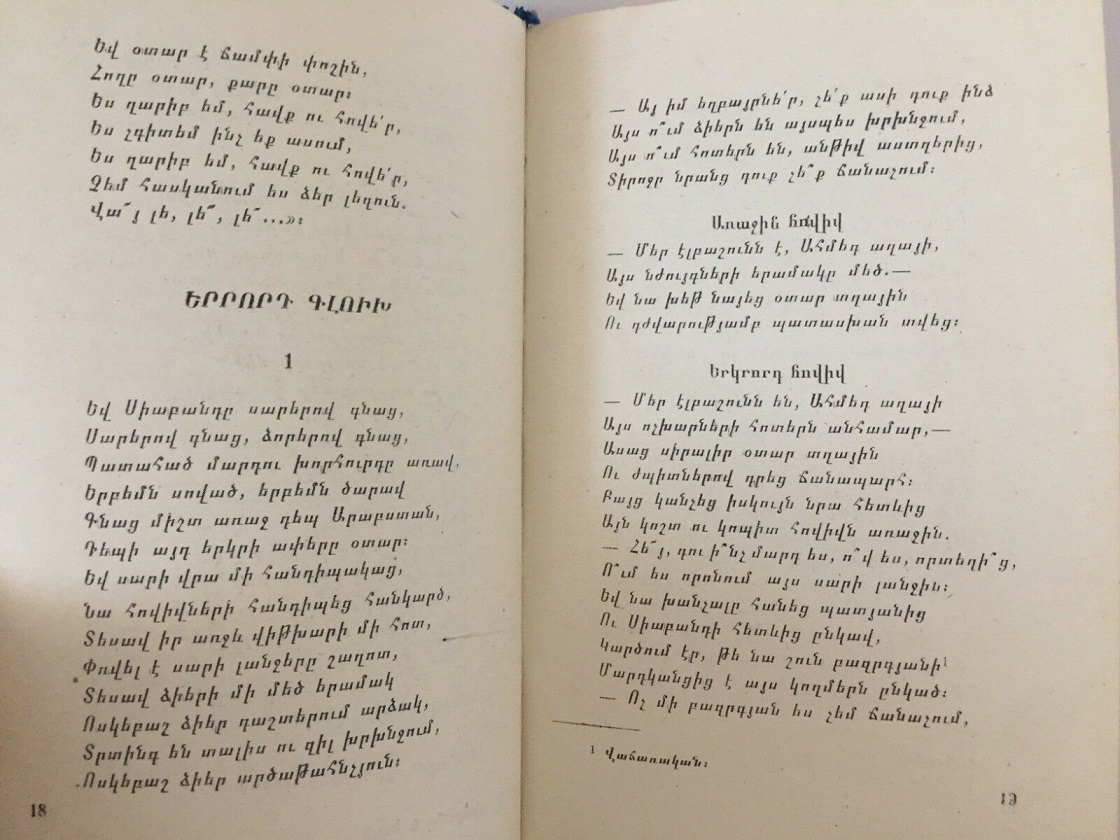 Եվ օտար է ճամփի փոշին,
Հողը օտար, քարը օտար։
Ես ղարիբ եմ, հավք ու հովե՛ր,
Ես չգիտեմ ինչ եք ասում,
Ես ղարիբ եմ, հավք ու հովե՛ր,
Չեմ հասկանում ես ձեր լեզուն.
Վա՜յ լե, լե՜, լե՜...»։
ԵՐՐՈՐԴ ԳԼՈՒԽ
1
Եվ Սիաբանդը սարերով գնաց,
Սարերով գնաց, ձորերով գնաց,
Պատահած մարդու խորհուրդը առավ,
Երբեմն սոված, երբեմն ծարավ
Գնաց միշտ առաջ դեպ Արաբստան,
Դեպի այդ երկրի ափերը օտար։
Եվ սարի վրա մի հանդիպակաց,
Նա հովիվների հանդիպեց հանկարծ,
Տեսավ իր առջև վիթխարի մի հոտ,
Փռվել է սարի լանջերը շաղոտ,
Տեսավ ձիերի մի մեծ երամակ
Ոսկեբաշ ձիեր դաշտերում արձակ,
Տրտինգ են տալիս ու զիլ խրխնջում,
Ոսկեբաշ ձիեր արծաթահնչյուն։
18
— Այ իմ եղբայրնե՛ր, չե՛ք ասի դուք ինձ
Այս ո՞ւմ ձիերն են այսպես խրխնջում,
Այս ո՞ւմ հոտերն են, անթիվ աստղերից,
Տիրոջը նրանց դուք չե՞ք ճանաչում։
Առաջին հովիվ
— Մեր էլբաշունն է, Ահմեդ աղայի,
Այս նժույգների երամակը մեծ.—
Եվ նա խեթ նայեց օտար տղային
Ու դժվարությամբ պատասխան տվեց։
Երկրորդ հովիվ
— Մեր էլբաշունն են, Ահմեդ աղայի
Այս ոչխարների հոտերն անհամար,—
Ասաց սիրալիր օտար տղային
Ու ժպիտներով դրեց ճանապարհ։
Բայց կանչեց իսկույն նրա հետևից
Այն կոշտ ու կոպիտ հովիվն առաջին.
— Հե՜յ, դու ի՞նչ մարդ ես, ո՞վ ես, որտեղի՞ց,
Ո՞ւմ ես որոնում այս սարի լանջին։
Եվ նա խանչալը հանեց պատյանից
Ու Սիաբանդի հետևից ընկավ,
Կարծում էր, թե նա շուն բազրգյանի¹
Մարդկանցից է այս կողմերն ընկած։
— Ոչ մի բազրգյան ես չեմ ճանաչում,
¹ Վաճառական։
19